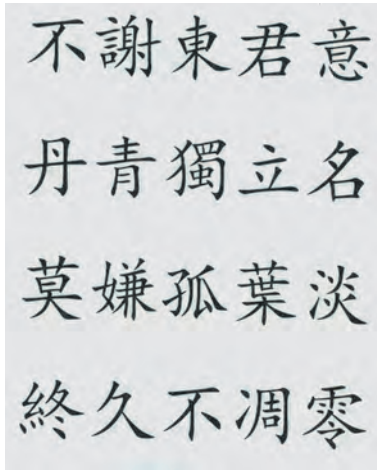 不謝東君意
丹青獨立名
莫嫌孤葉淡
終久不凋零